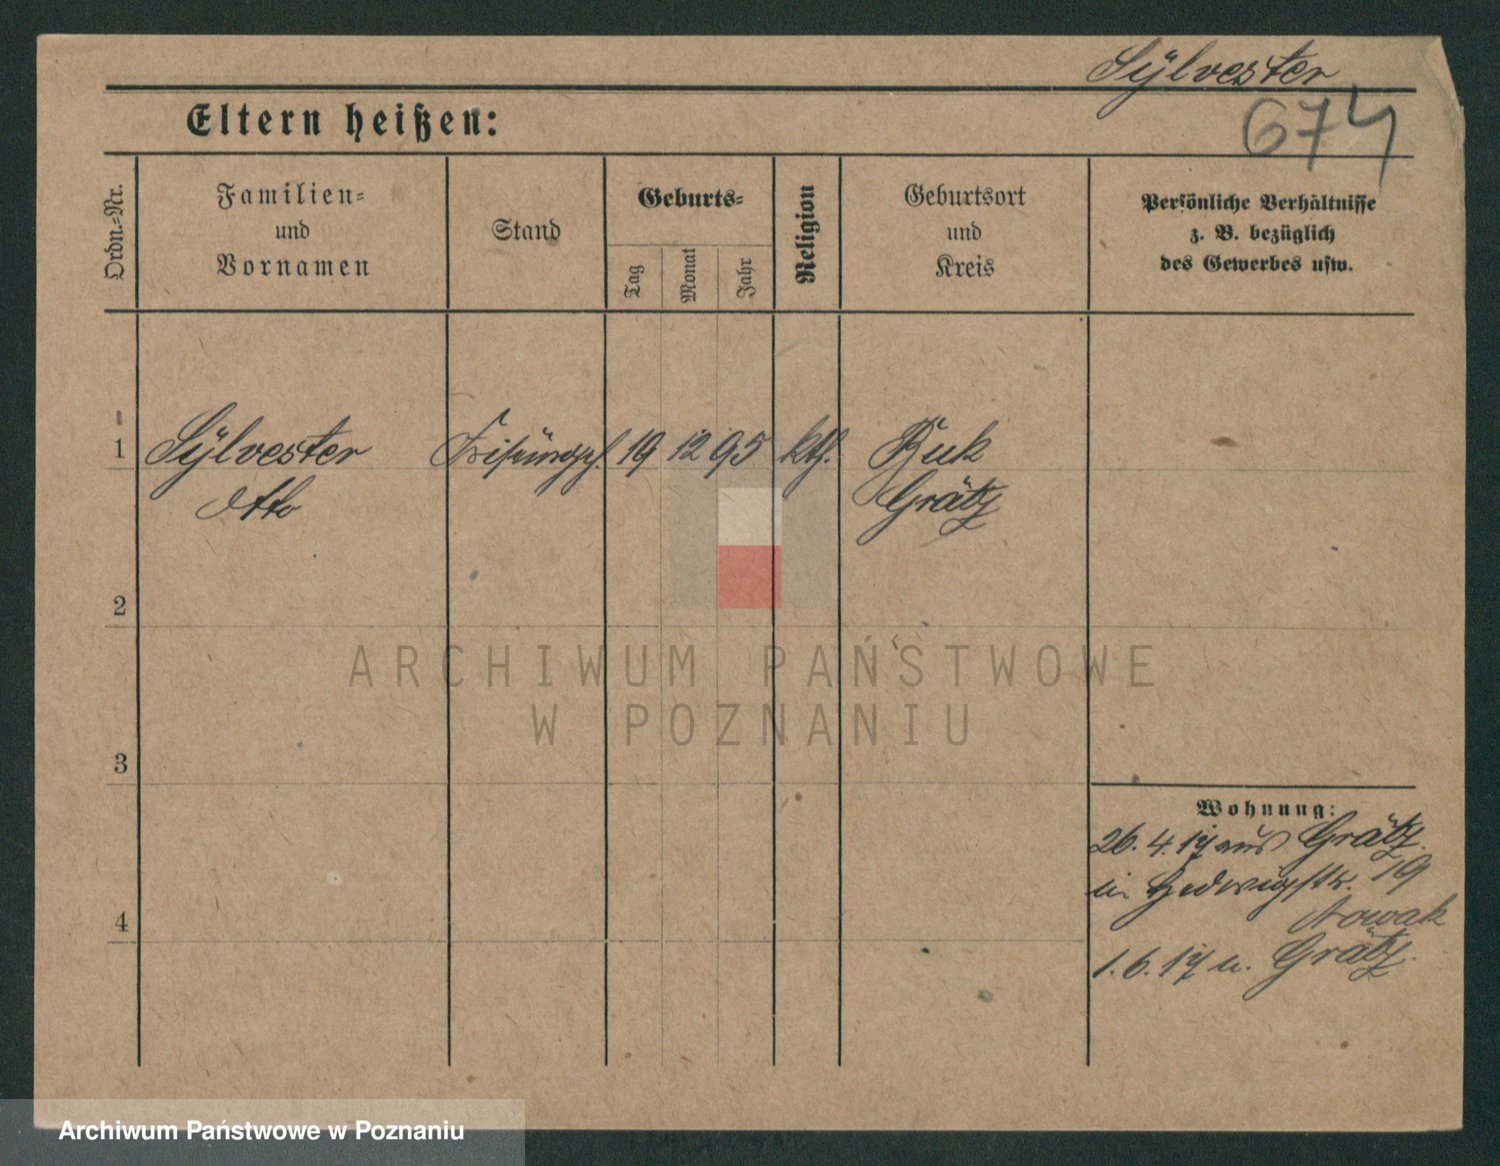 Sÿlvester
674
Eltern heißen:
Ordn.-Nr.
Familien-
und
Vornamen
Stand
Geburts-
Tag
Monat
Jahr
Religion
Geburtsort
und
Kreis
Persönliche Verhältnisse
z. B. bezüglich
des Gewerbes usw.
1 Sÿlvester Friseurgeh. 19 12 95 kth. Buk
Otto Grätz
2
3
4
Wohnung:
26. 4. 17 aus Grätz.
in Hedwigstr. 19
Nowak
1. 6. 17 n. Grätz.
ARCHIWUM PAŃSTWOWE
W POZNANIU
Archiwum Państwowe w Poznaniu